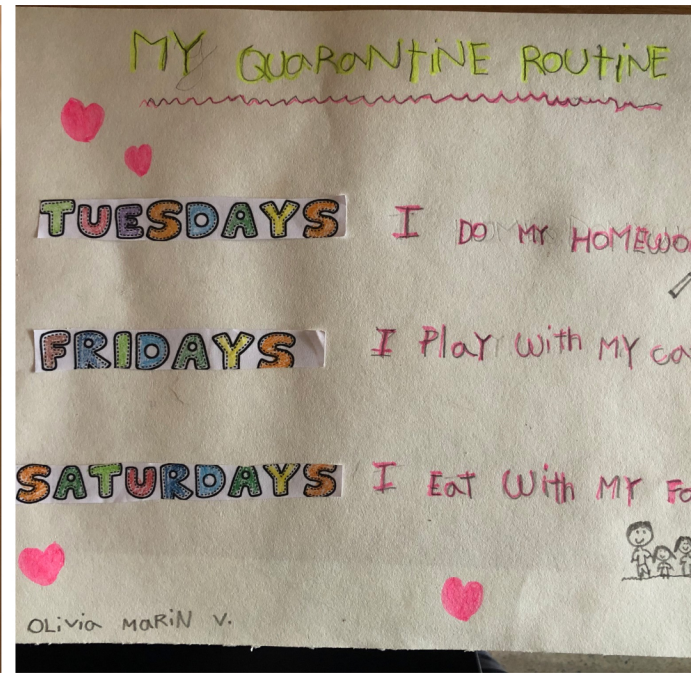 MY QUARANTINE ROUTINE
TUESDAYS I DO MY
FRIDAYS I Play With MY
SATURDAYS I Eat With MY
OLivia MARiN V.